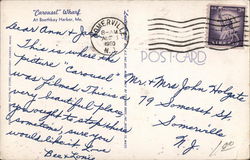 "Carousel" Wharf
At Boothbay Harbor, Me.
SOMERVILLE
8 - AM
1960
N.J.
POST CARD
Dear Ann & J
This is where the
picture "Carousel"
was filmed. This is a
very beautiful place
thought to stop here
sometime, sure you
would like it too
Bee & Louis
Mr & Mrs John Holgate
79 Somerset St.
Somerville
N. J.